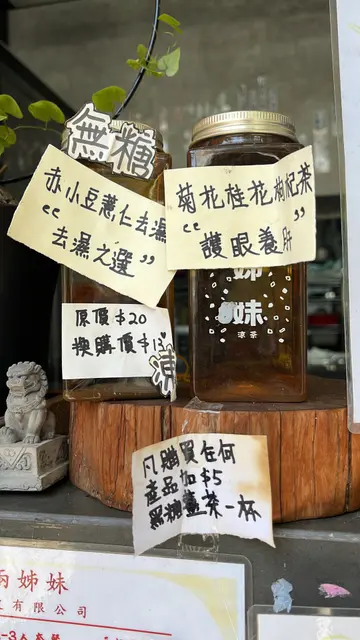 無糖
赤小豆薏仁去濕
“去濕之選”
菊花桂花枸杞茶
“護眼養肝”
原價$20
換購價$13
姊妹
涼茶
凡購買任何
產品加$5
黑糖薑茶一杯
兩姊妹
有限公司